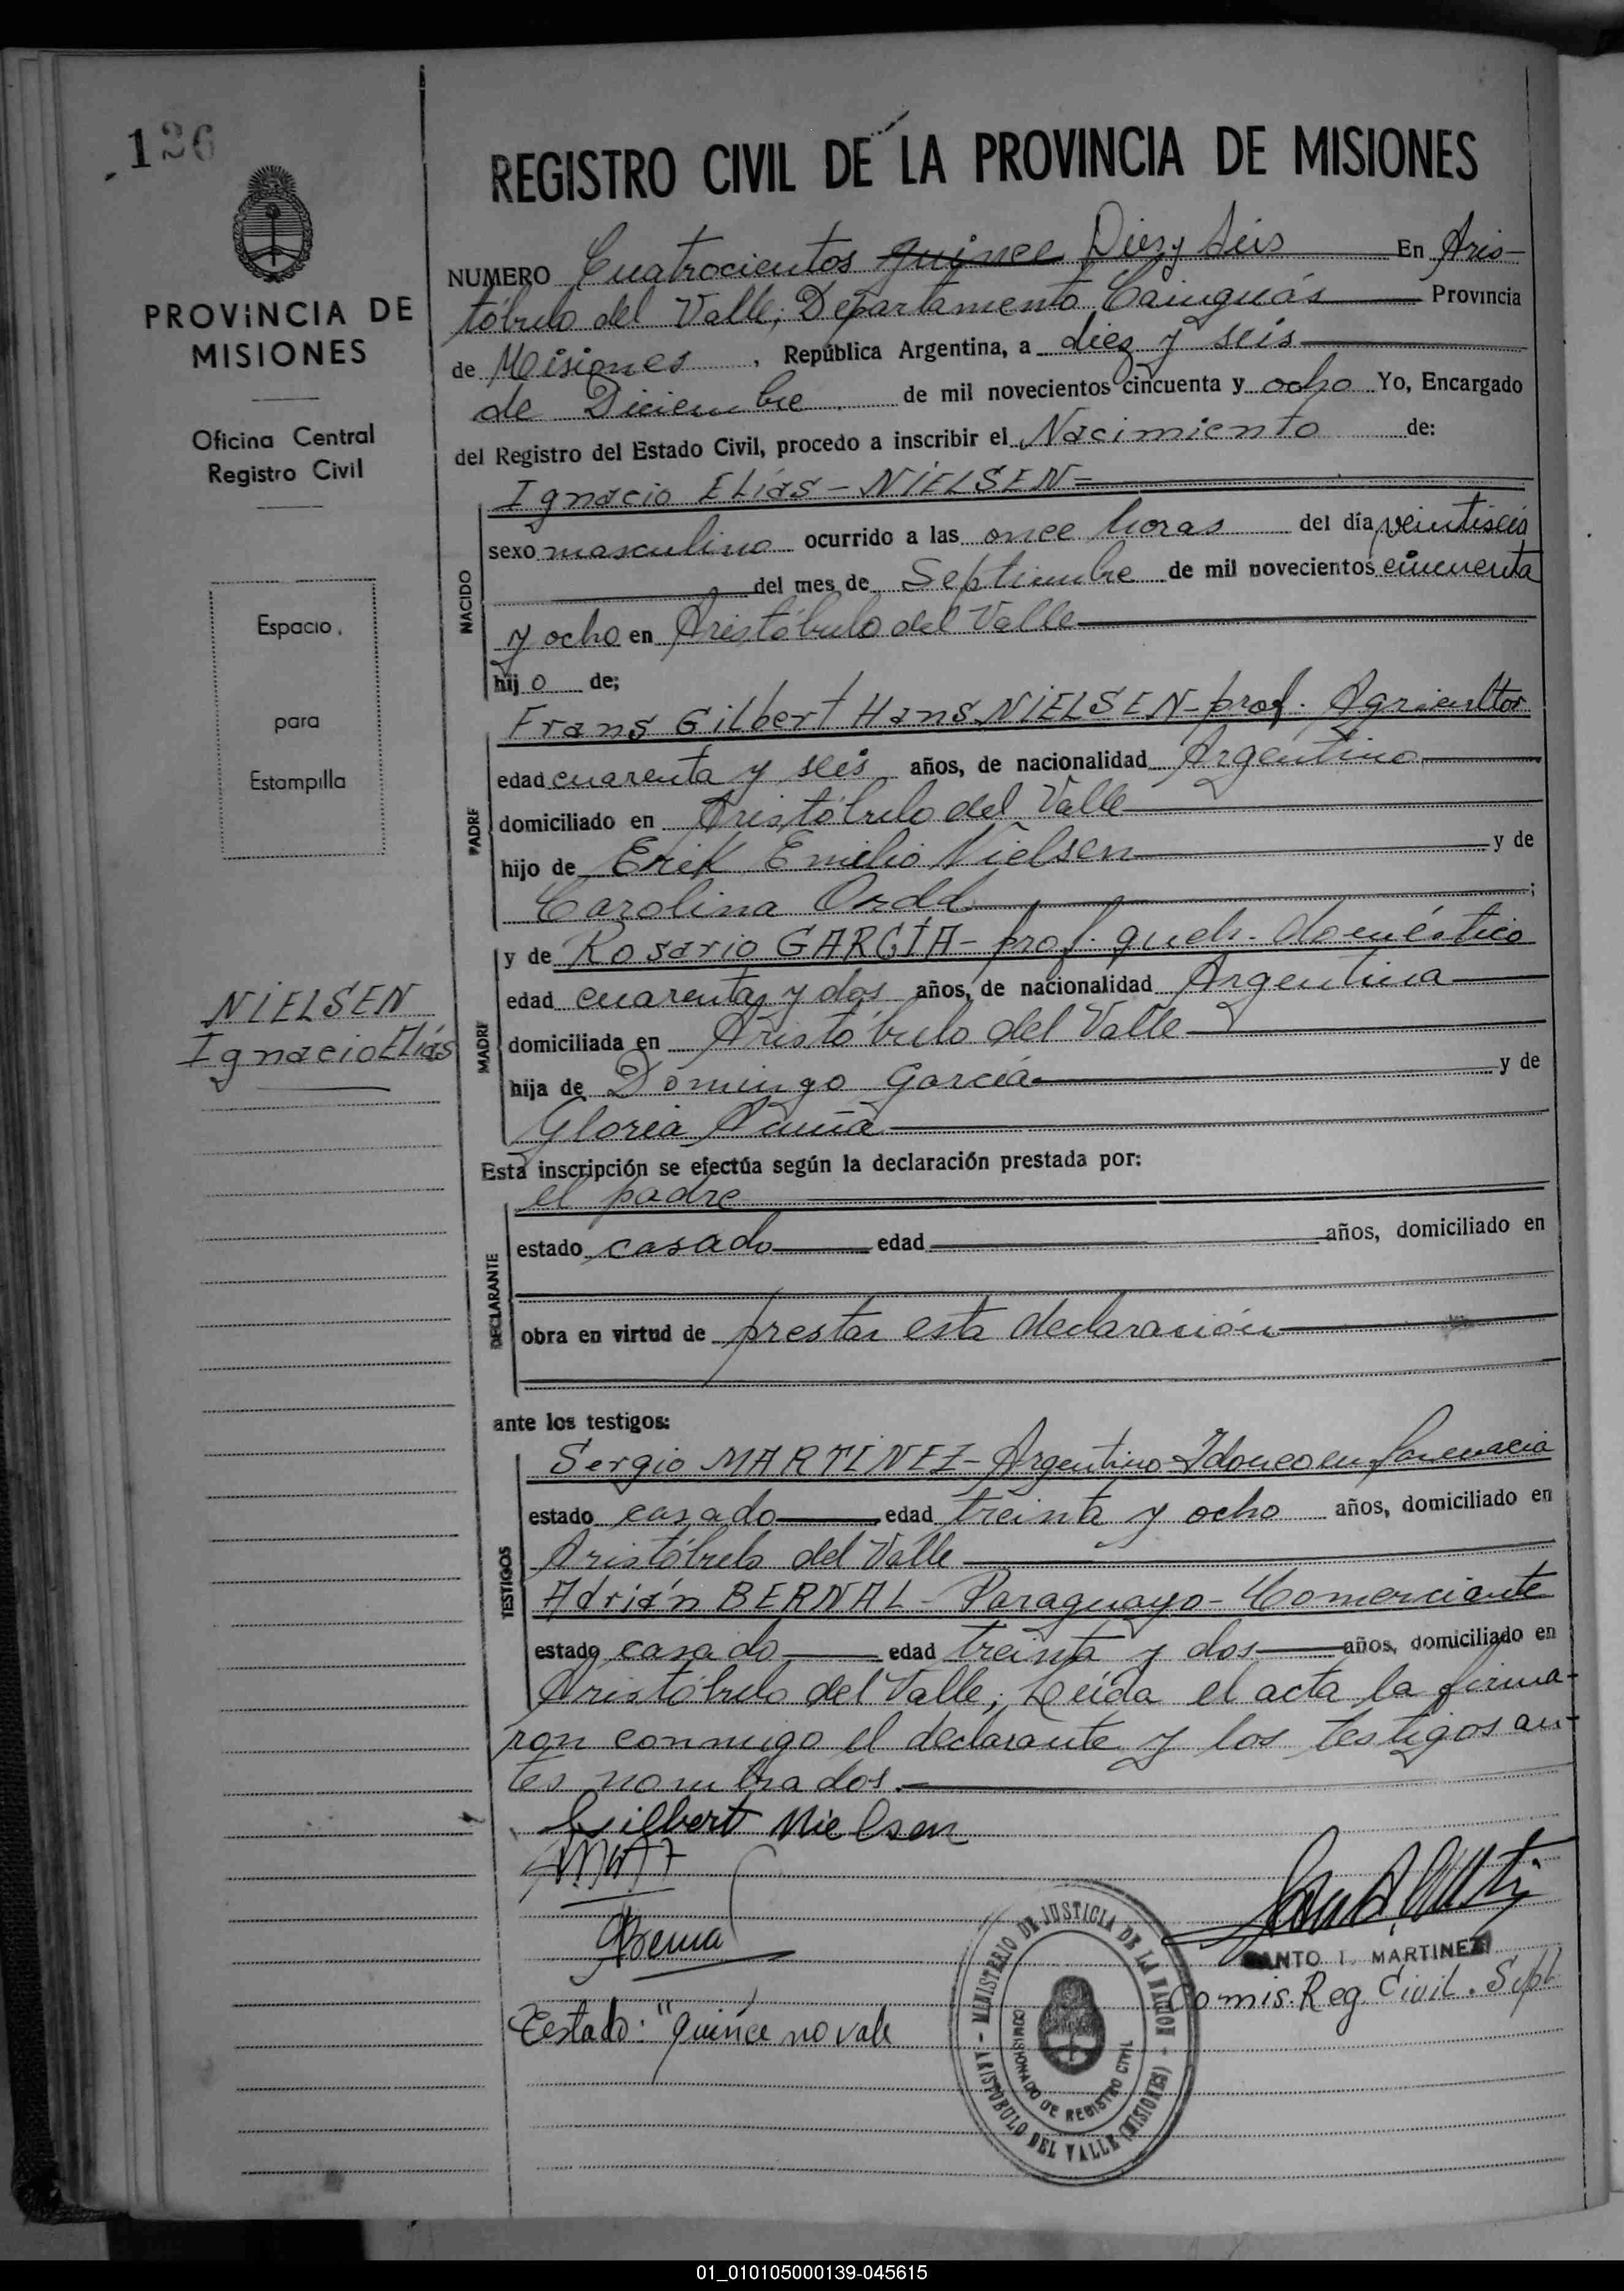 126
PROVINCIA DE
MISIONES
Oficina Central
Registro Civil
Espacio
para
Estampilla
NIELSEN
Ignacio Elías
REGISTRO CIVIL DE LA PROVINCIA DE MISIONES
NUMERO Cuatrocientos quince Diez y Seis En Aris-
tóbulo del Valle, Departamento Cainguás Provincia
de Misiones, República Argentina, a diez y seis
de Diciembre de mil novecientos cincuenta y ocho Yo, Encargado
del Registro del Estado Civil, procedo a inscribir el Nacimiento de:
NACIDO
Ignacio Elías - NIELSEN =
sexo masculino ocurrido a las once horas del día veintiseis
del mes de Septiembre de mil novecientos cincuenta
y ocho en Aristóbulo del Valle
hijo de;
PADRE
Frans Gilbert Hans NIELSEN - prof. Agricultor
edad cuarenta y seis años, de nacionalidad Argentino
domiciliado en Aristóbulo del Valle
hijo de Erik Emilio Nielsen y de
Carolina ;
MADRE
y de Rosario GARCÍA - prof. queh. doméstico
edad cuarenta y dos años, de nacionalidad Argentina
domiciliada en Aristóbulo del Valle
hija de Domingo García y de
Gloria
Esta inscripción se efectúa según la declaración prestada por:
DECLARANTE
el padre
estado casado edad años, domiciliado en
obra en virtud de prestar esta declaración
ante los testigos:
TESTIGOS
Sergio MARTINEZ - Argentino - Idoneo en farmacia
estado casado edad treinta y ocho años, domiciliado en
Aristóbulo del Valle
Adrián BERNAL - Paraguayo - Comerciante
estado casado edad treinta y dos años, domiciliado en
Aristóbulo del Valle; Leída el acta la firma-
ron conmigo el declarante y los testigos an-
tes nombrados.
Gilbert Nielsen
SANTO I. MARTINEZ
Comis. Reg. Civil. Supl.
Testado: "quince no vale
MINISTERIO DE JUSTICIA DE LA NACION
COMISIONADO DE REGISTRO CIVIL
ARISTOBULO DEL VALLE (MISIONES)
01_010105000139-045615